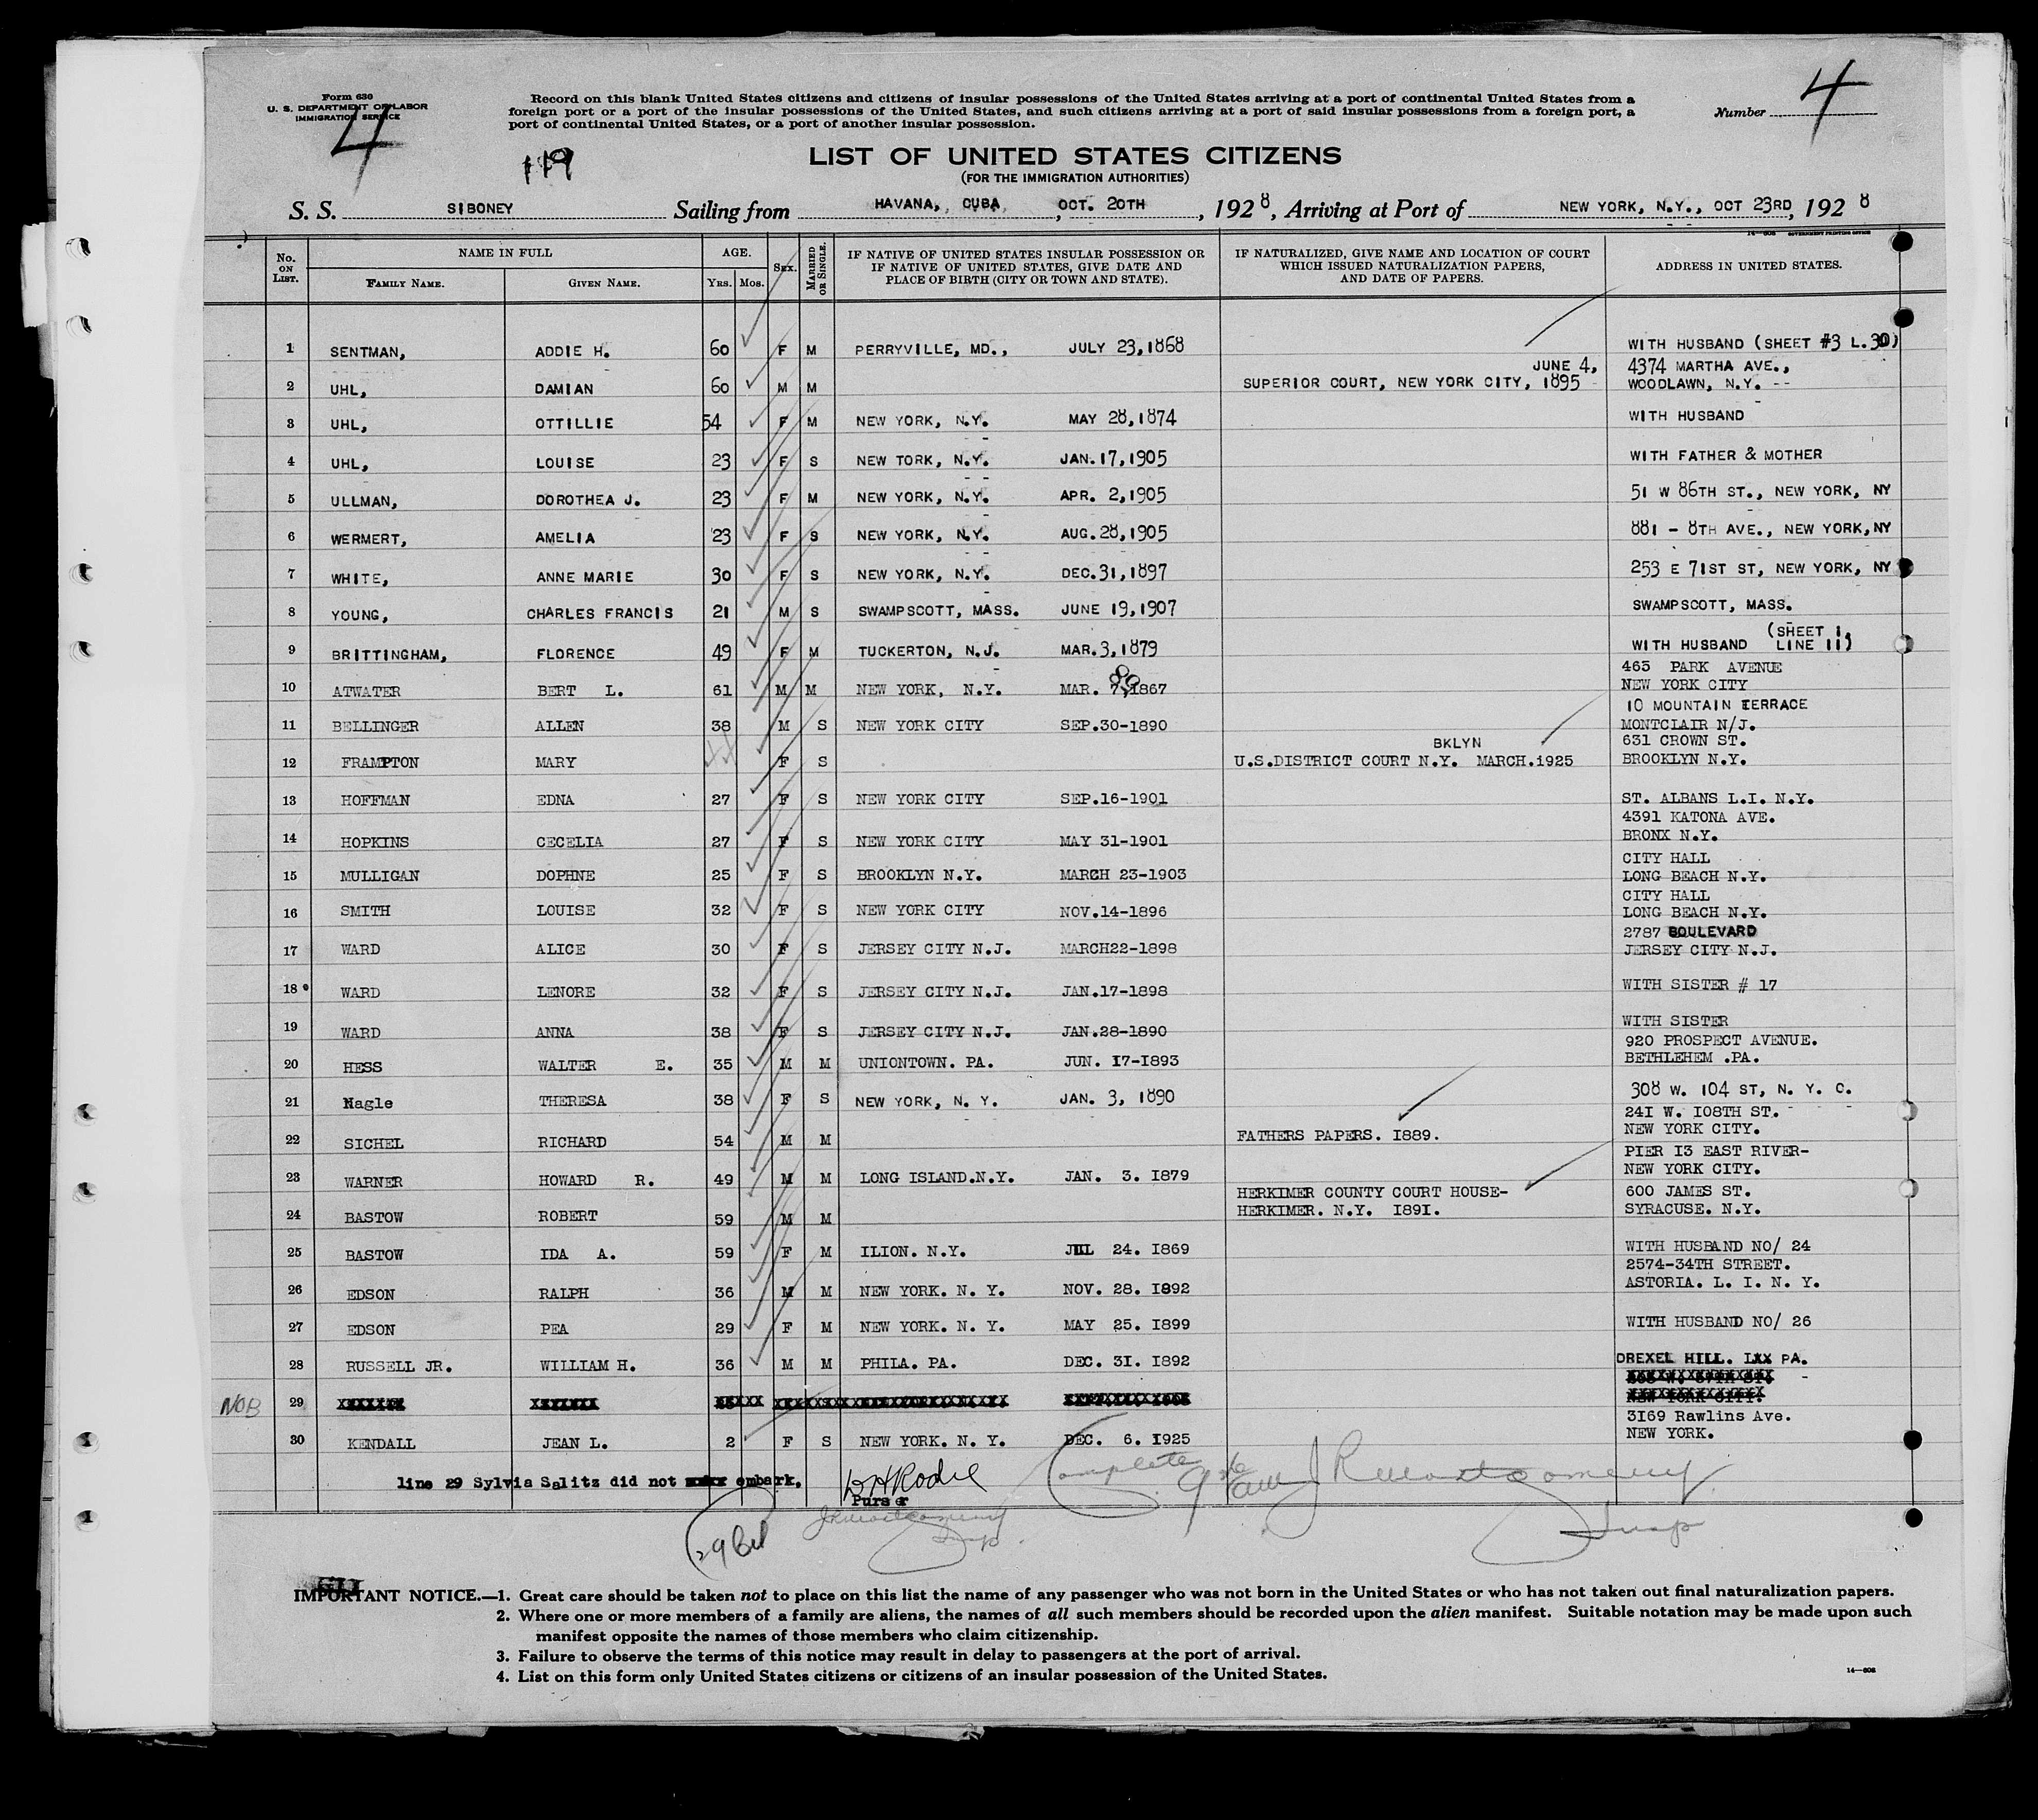 Form 630
U. S. DEPARTMENT OF LABOR
IMMIGRATION SERVICE
4
119
Record on this blank United States citizens and citizens of insular possessions of the United States arriving at a port of continental United States from a
foreign port or a port of the insular possessions of the United States, and such citizens arriving at a port of said insular possessions from a foreign port, a
port of continental United States, or a port of another insular possession.
Number 4
LIST OF UNITED STATES CITIZENS
(FOR THE IMMIGRATION AUTHORITIES)
S. S. SIBONEY Sailing from HAVANA, CUBA, OCT. 20TH, 1928, Arriving at Port of NEW YORK, N.Y., OCT 23RD, 1928
14—608 GOVERNMENT PRINTING OFFICE
No. ON LIST. NAME IN FULL FAMILY NAME. GIVEN NAME. AGE. YRS. MOS. SEX. MARRIED OR SINGLE. IF NATIVE OF UNITED STATES INSULAR POSSESSION OR IF NATIVE OF UNITED STATES, GIVE DATE AND PLACE OF BIRTH (CITY OR TOWN AND STATE). IF NATURALIZED, GIVE NAME AND LOCATION OF COURT WHICH ISSUED NATURALIZATION PAPERS, AND DATE OF PAPERS. ADDRESS IN UNITED STATES.
1 SENTMAN, ADDIE H. 60 F M PERRYVILLE, MD., JULY 23,1868 WITH HUSBAND (SHEET #3 L.30)
2 UHL, DAMIAN 60 M M SUPERIOR COURT, NEW YORK CITY, JUNE 4, 1895 4374 MARTHA AVE., WOODLAWN, N.Y.
3 UHL, OTTILLIE 54 F M NEW YORK, N.Y. MAY 28,1874 WITH HUSBAND
4 UHL, LOUISE 23 F S NEW TORK, N.Y. JAN.17,1905 WITH FATHER & MOTHER
5 ULLMAN, DOROTHEA J. 23 F M NEW YORK, N.Y. APR. 2,1905 51 W 86TH ST., NEW YORK, NY
6 WERMERT, AMELIA 23 F S NEW YORK, N.Y. AUG.28,1905 881 - 8TH AVE., NEW YORK,NY
7 WHITE, ANNE MARIE 30 F S NEW YORK, N.Y. DEC.31,1897 253 E 71ST ST, NEW YORK, NY
8 YOUNG, CHARLES FRANCIS 21 M S SWAMPSCOTT, MASS. JUNE 19,1907 SWAMPSCOTT, MASS.
9 BRITTINGHAM, FLORENCE 49 F M TUCKERTON, N.J. MAR.3,1879 WITH HUSBAND (SHEET 1, LINE 11)
10 ATWATER BERT L. 61 M M NEW YORK, N.Y. MAR. 7,1867 465 PARK AVENUE NEW YORK CITY
11 BELLINGER ALLEN 38 M S NEW YORK CITY SEP.30-1890 10 MOUNTAIN TERRACE MONTCLAIR N/J.
12 FRAMPTON MARY 44 F S U.S.DISTRICT COURT N.Y. BKLYN MARCH.1925 631 CROWN ST. BROOKLYN N.Y.
13 HOFFMAN EDNA 27 F S NEW YORK CITY SEP.16-1901 ST. ALBANS L.I. N.Y.
14 HOPKINS CECELIA 27 F S NEW YORK CITY MAY 31-1901 4391 KATONA AVE. BRONX N.Y.
15 MULLIGAN DOPHNE 25 F S BROOKLYN N.Y. MARCH 23-1903 CITY HALL LONG BEACH N.Y.
16 SMITH LOUISE 32 F S NEW YORK CITY NOV.14-1896 CITY HALL LONG BEACH N.Y.
17 WARD ALICE 30 F S JERSEY CITY N.J. MARCH22-1898 2787 BOULEVARD JERSEY CITY N.J.
18 WARD LENORE 32 F S JERSEY CITY N.J. JAN.17-1898 WITH SISTER # 17
19 WARD ANNA 38 F S JERSEY CITY N.J. JAN.28-1890 WITH SISTER
20 HESS WALTER E. 35 M M UNIONTOWN. PA. JUN. 17-1893 920 PROSPECT AVENUE. BETHLEHEM .PA.
21 Nagle THERESA 38 F S NEW YORK, N. Y. JAN. 3, 1890 308 W. 104 ST, N. Y. C.
22 SICHEL RICHARD 54 M M FATHERS PAPERS. 1889. 241 W. 108TH ST. NEW YORK CITY.
23 WARNER HOWARD R. 49 M M LONG ISLAND.N.Y. JAN. 3. 1879 PIER 13 EAST RIVER- NEW YORK CITY.
24 BASTOW ROBERT 59 M M HERKIMER COUNTY COURT HOUSE- HERKIMER. N.Y. 1891. 600 JAMES ST. SYRACUSE. N.Y.
25 BASTOW IDA A. 59 F M ILION. N.Y. JUL 24. 1869 WITH HUSBAND NO/ 24
26 EDSON RALPH 36 M M NEW YORK. N. Y. NOV. 28. 1892 2574-34TH STREET. ASTORIA. L. I. N. Y.
27 EDSON PEA 29 F M NEW YORK. N. Y. MAY 25. 1899 WITH HUSBAND NO/ 26
28 RUSSELL JR. WILLIAM H. 36 M M PHILA. PA. DEC. 31. 1892 DREXEL HILL. PA.
NOB 29
30 KENDALL JEAN L. 2 F S NEW YORK. N. Y. DEC. 6. 1925 3169 Rawlins Ave. NEW YORK.
line 29 Sylvia Salitz did not embark.
Purser
Complete
J R Montgomery
Insp
J R Montgomery
Insp.
IMPORTANT NOTICE.—1. Great care should be taken not to place on this list the name of any passenger who was not born in the United States or who has not taken out final naturalization papers.
2. Where one or more members of a family are aliens, the names of all such members should be recorded upon the alien manifest. Suitable notation may be made upon such
manifest opposite the names of those members who claim citizenship.
3. Failure to observe the terms of this notice may result in delay to passengers at the port of arrival.
4. List on this form only United States citizens or citizens of an insular possession of the United States.
14—608